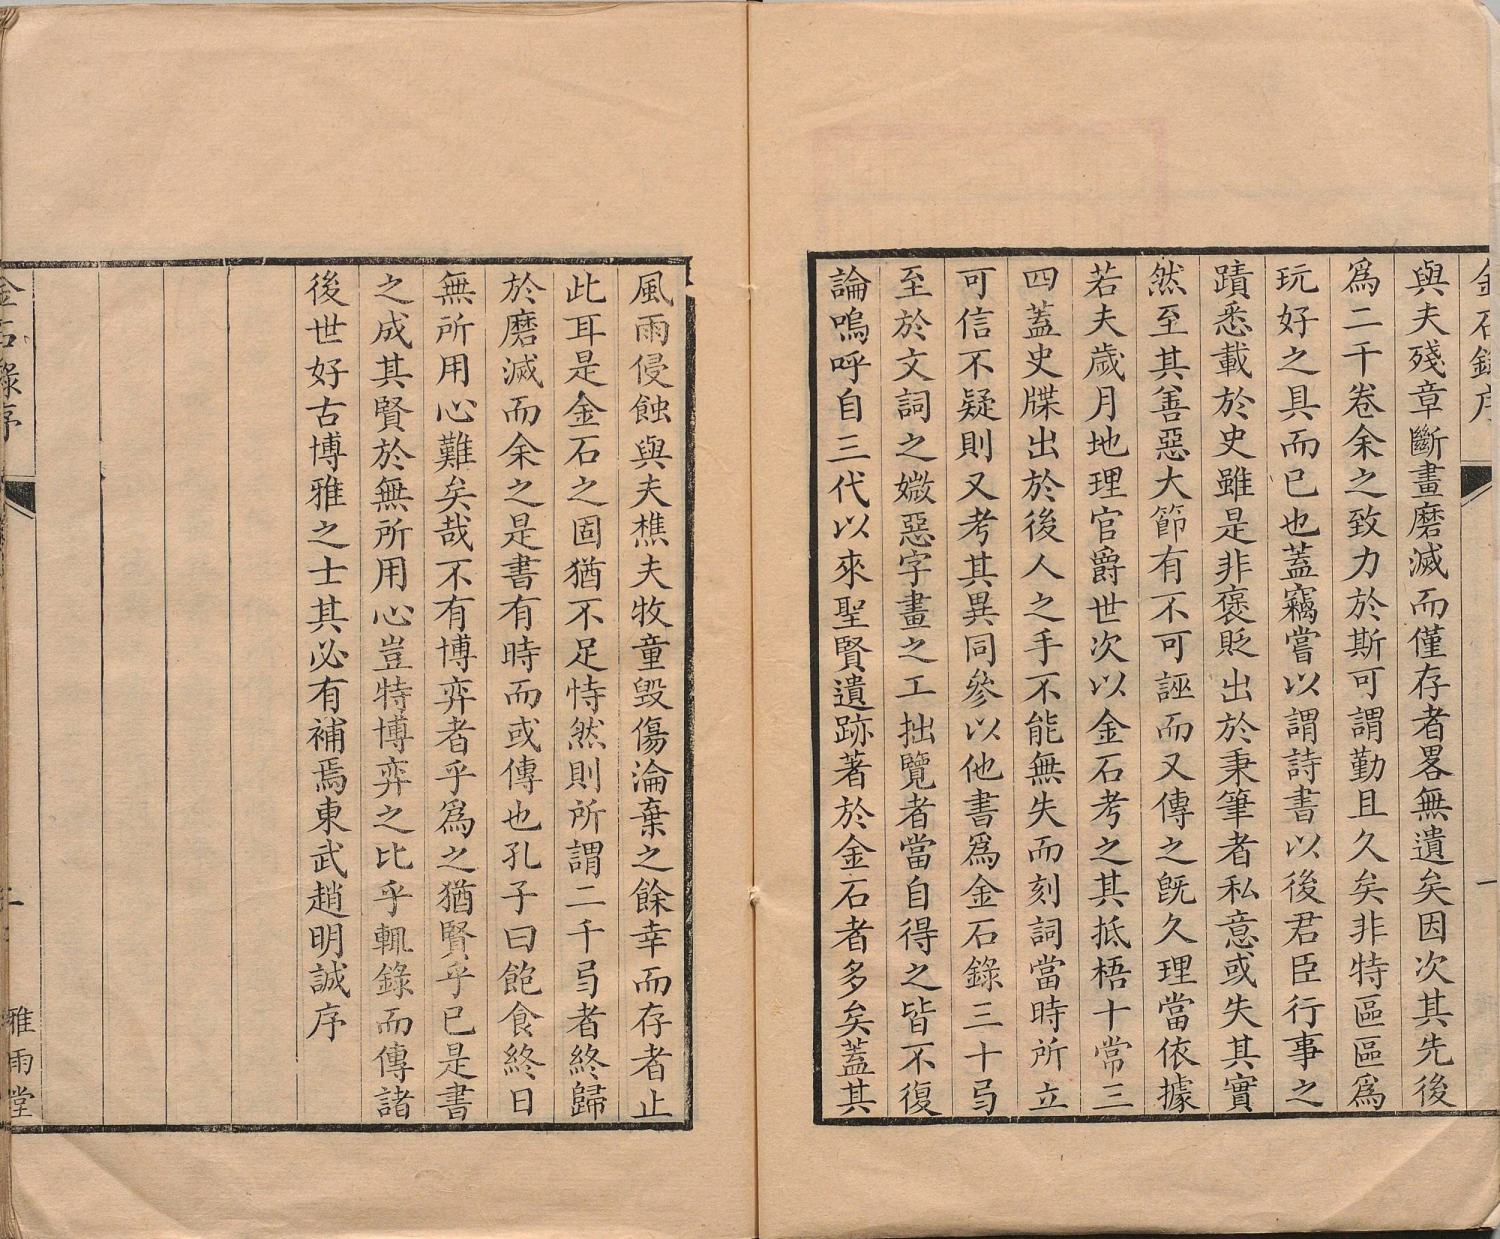 金石錄序
一
與夫殘章斷畫磨滅而僅存者畧無遺矣因次其先後
爲二千卷余之致力於斯可謂勤且久矣非特區區爲
玩好之具而已也蓋竊嘗以謂詩書以後君臣行事之
蹟悉載於史雖是非褒貶出於秉筆者私意或失其實
然至其善惡大節有不可誣而又傳之旣久理當依據
若夫歲月地理官爵世次以金石考之其抵梧十常三
四蓋史牒出於後人之手不能無失而刻詞當時所立
可信不疑則又考其異同參以他書爲金石錄三十弓
至於文詞之媺惡字畫之工拙覽者當自得之皆不復
論嗚呼自三代以來聖賢遺跡著於金石者多矣蓋其
風雨侵蝕與夫樵夫牧童毀傷淪棄之餘幸而存者止
此耳是金石之固猶不足恃然則所謂二千弓者終歸
於磨滅而余之是書有時而或傳也孔子曰飽食終日
無所用心難矣哉不有博弈者乎爲之猶賢乎已是書
之成其賢於無所用心豈特博弈之比乎輒錄而傳諸
後世好古博雅之士其必有補焉東武趙明誠序
金石錄序
二
雅雨堂